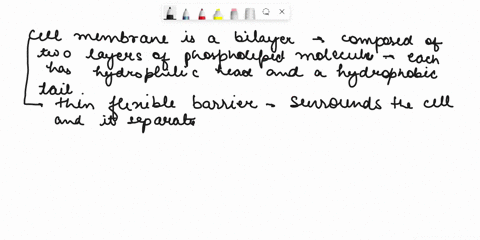 cell membrane is a bilayer → composed of
two layers of phospholipid molecule → each
has hydrophilic head and a hydrophobic
tail.
→ thin flexible barrier → surrounds the cell
and it separate